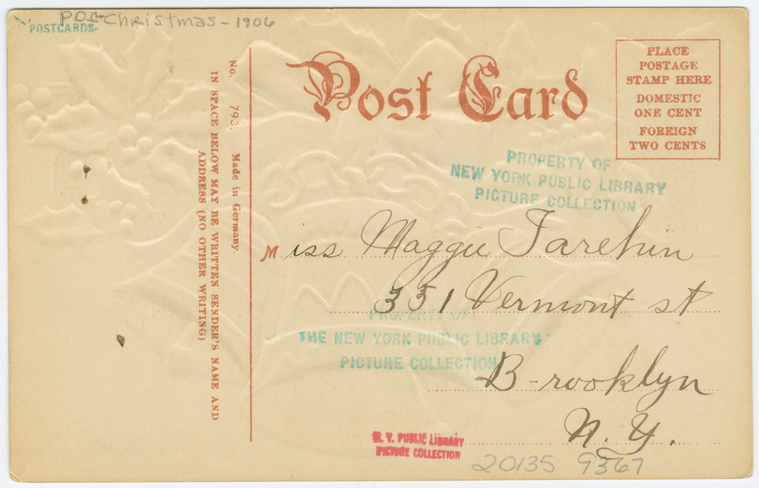 POC-Christmas-1906
POSTCARDS
No. 793. Made in Germany
IN SPACE BELOW MAY BE WRITTEN SENDER'S NAME AND
ADDRESS (NO OTHER WRITING)
Post Card
PLACE
POSTAGE
STAMP HERE
DOMESTIC
ONE CENT
FOREIGN
TWO CENTS
PROPERTY OF
NEW YORK PUBLIC LIBRARY
PICTURE COLLECTION
Miss Maggie
351 Vermont st
PROPERTY OF
THE NEW YORK PUBLIC LIBRARY
PICTURE COLLECTION
B-rooklyn
N.Y.
N. Y. PUBLIC LIBRARY
PICTURE COLLECTION
20135 9367